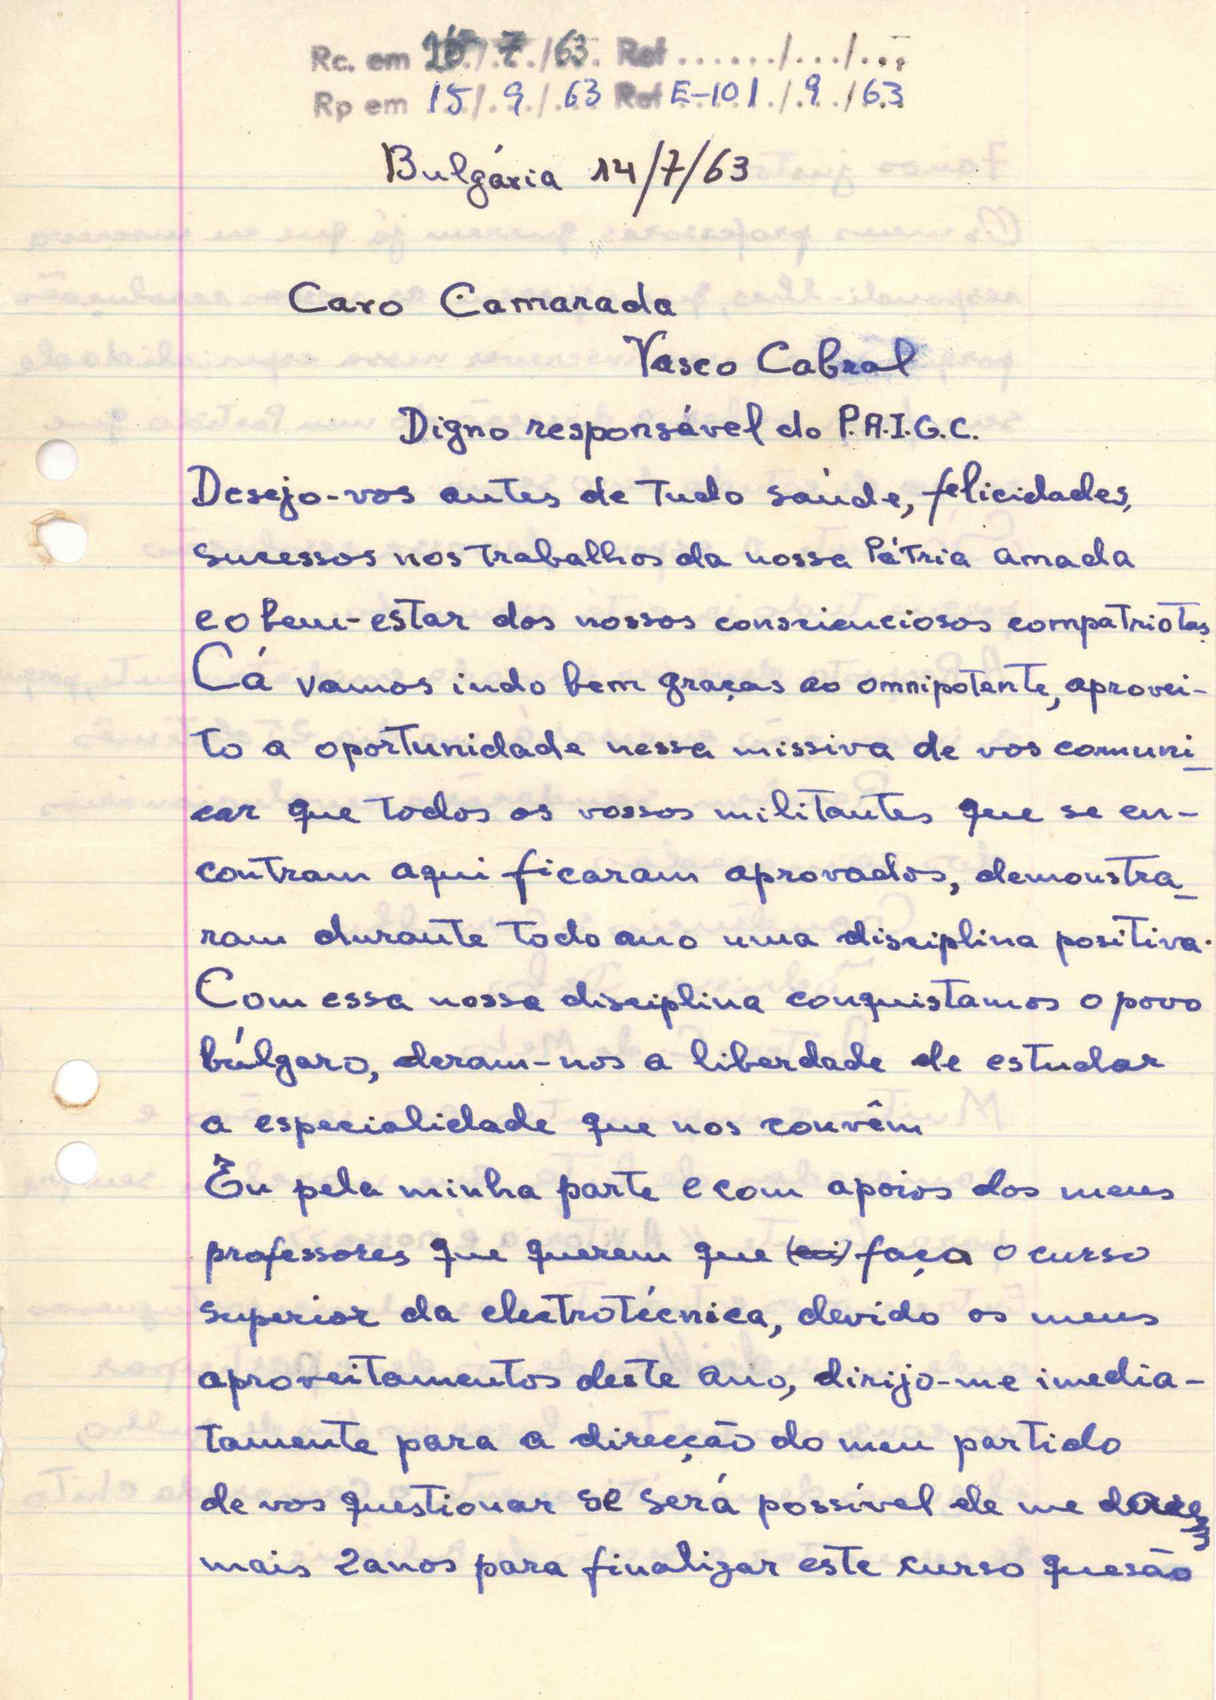 Rc. em 26/7/63. Ref ....../.../...
Rp em 15/9/63 Ref E-101/9/63
Bulgária 14/7/63
Caro Camarada
Vasco Cabral
Digno responsável do P.A.I.G.C.
Desejo-vos antes de tudo saúde, felicidades,
sucessos nos trabalhos da nossa Pátria amada
e o bem-estar dos nossos consciênciosos compatriotas.
Cá vamos indo bem graças ao omnipotente, aprovei-
to a oportunidade nessa missiva de vos comuni-
car que todos os vossos militantes que se en-
contram aqui ficaram aprovados, demonstra-
ram durante todo ano uma disciplina positiva.
Com essa nossa disciplina conquistamos o povo
búlgaro, deram-nos a liberdade de estudar
a especialidade que nos convêm
Eu pela minha parte e com apoios dos meus
professores que querem que faça o curso
superior da electrotécnica, devido os meus
aproveitamentos deste ano, dirijo-me imedia-
tamente para a direcção do meu partido
de vos questionar se será possível de me
mais 2 anos para finalizar este curso que são